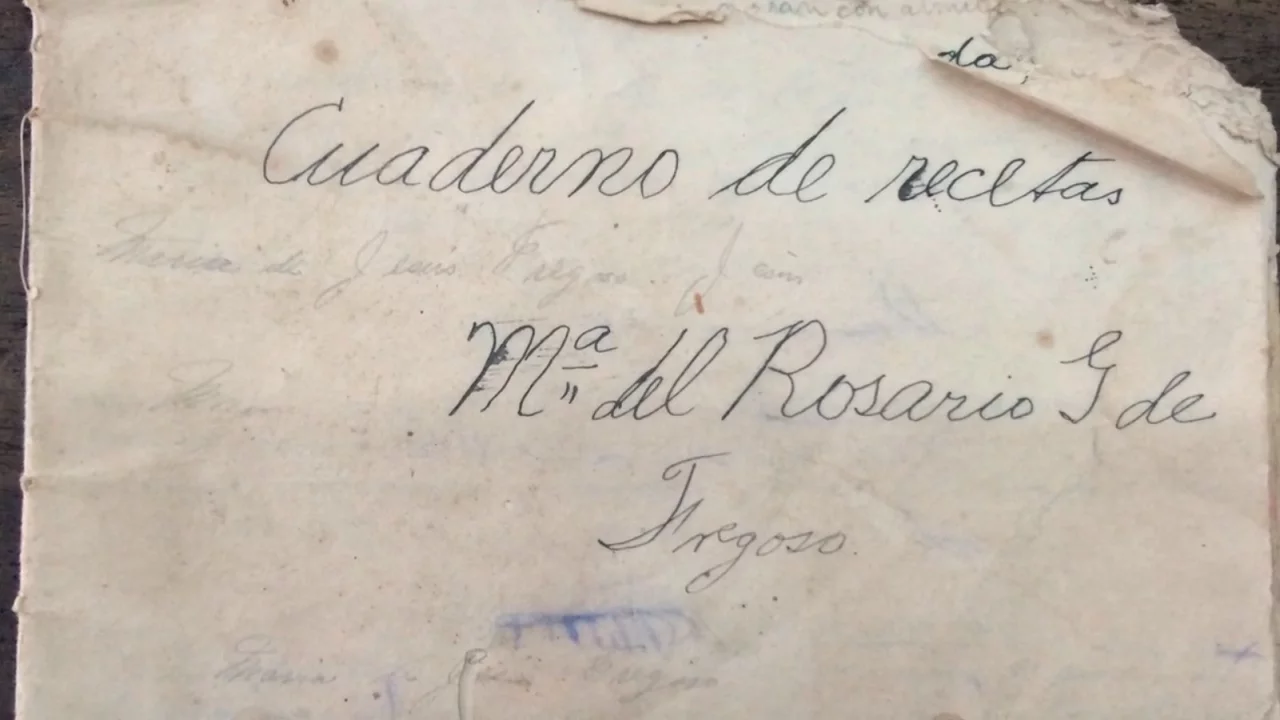 con
da,
Cuaderno de recetas
Maria de Jesús Fregoso. Jesús
Mª del Rosario G de
Fregoso.
Maria de Jesús Fregoso